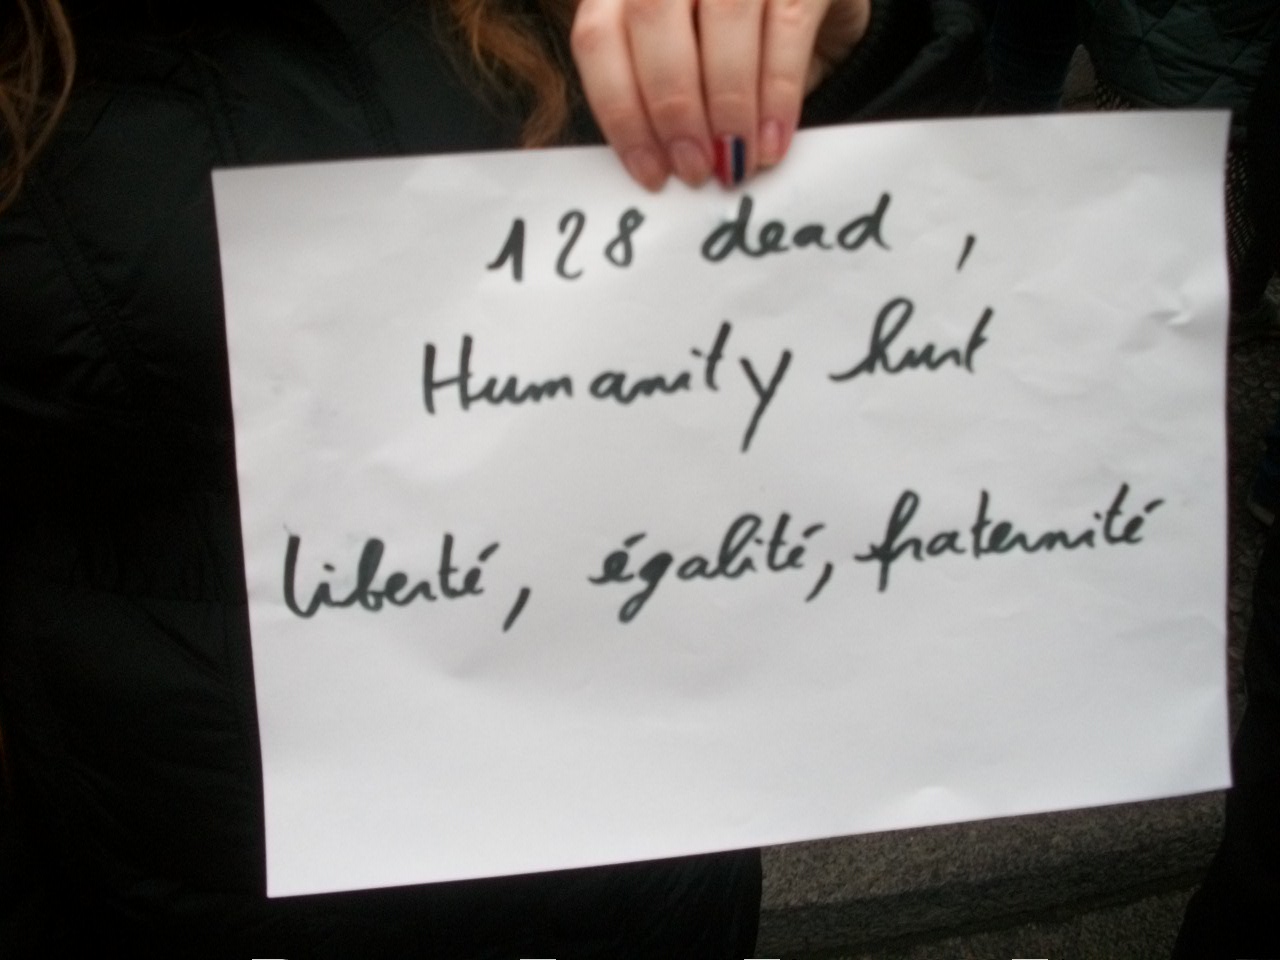 128 dead,
Humanity hurt
liberté, égalité, fraternité